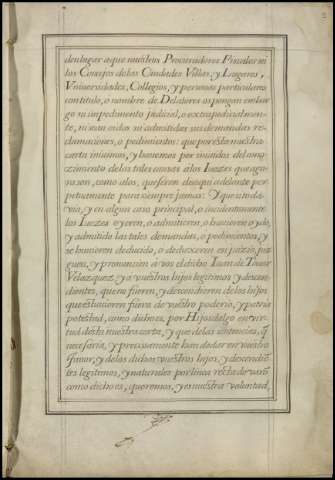 den lugar a que nuestros Procuradores Fiscales ni
los Consejos de las Ciudades Villas, y Lugares,
Vniuersidades, Collegios, y personas particulares
con titulo, o nombre de Delatores os pongan embar-
go ni impedimento judicial, o extrajudicialmen-
te, ni sean oidos ni admitidas sus demandas re-
clamaciones, o pedimientos: que por esta nuestra
carta iniuimos, y hauemos por inuiuidos del cono-
zimiento de las tales causas a los Iuezes que ago-
ra son, como a los, que seren de aqui adelante per-
petuamente para siempre jamas: Y que si toda
via, y en algun caso principal, o incidentemente
los Iuezes oyeren, o admitieren, o huuieren oydo,
y admitido las tales demandas, o pedimientos, y
se huuieren deducido, o deduxeren en juizio, pa
guen, y pronuncien a vos el dicho Iuan de Touar
Velazquez, y a vuestros hijos legitimos y descen-
dientes, que no fueren, y descendieren de los hijos
que estuuieren fuera de vuestro poderio, y patria
potestad, como dicho es, por Hijosdalgo en vir-
tud desta nuestra carta, y que de las sentencias, q̃
necessaria, y precissamente han de dar en vuestro
fauor, y de los dichos vuestros hijos, y descendiẽ-
tes legitimos, y naturales por linea recta de varõ
como dicho es, queremos, y es nuestra voluntad,